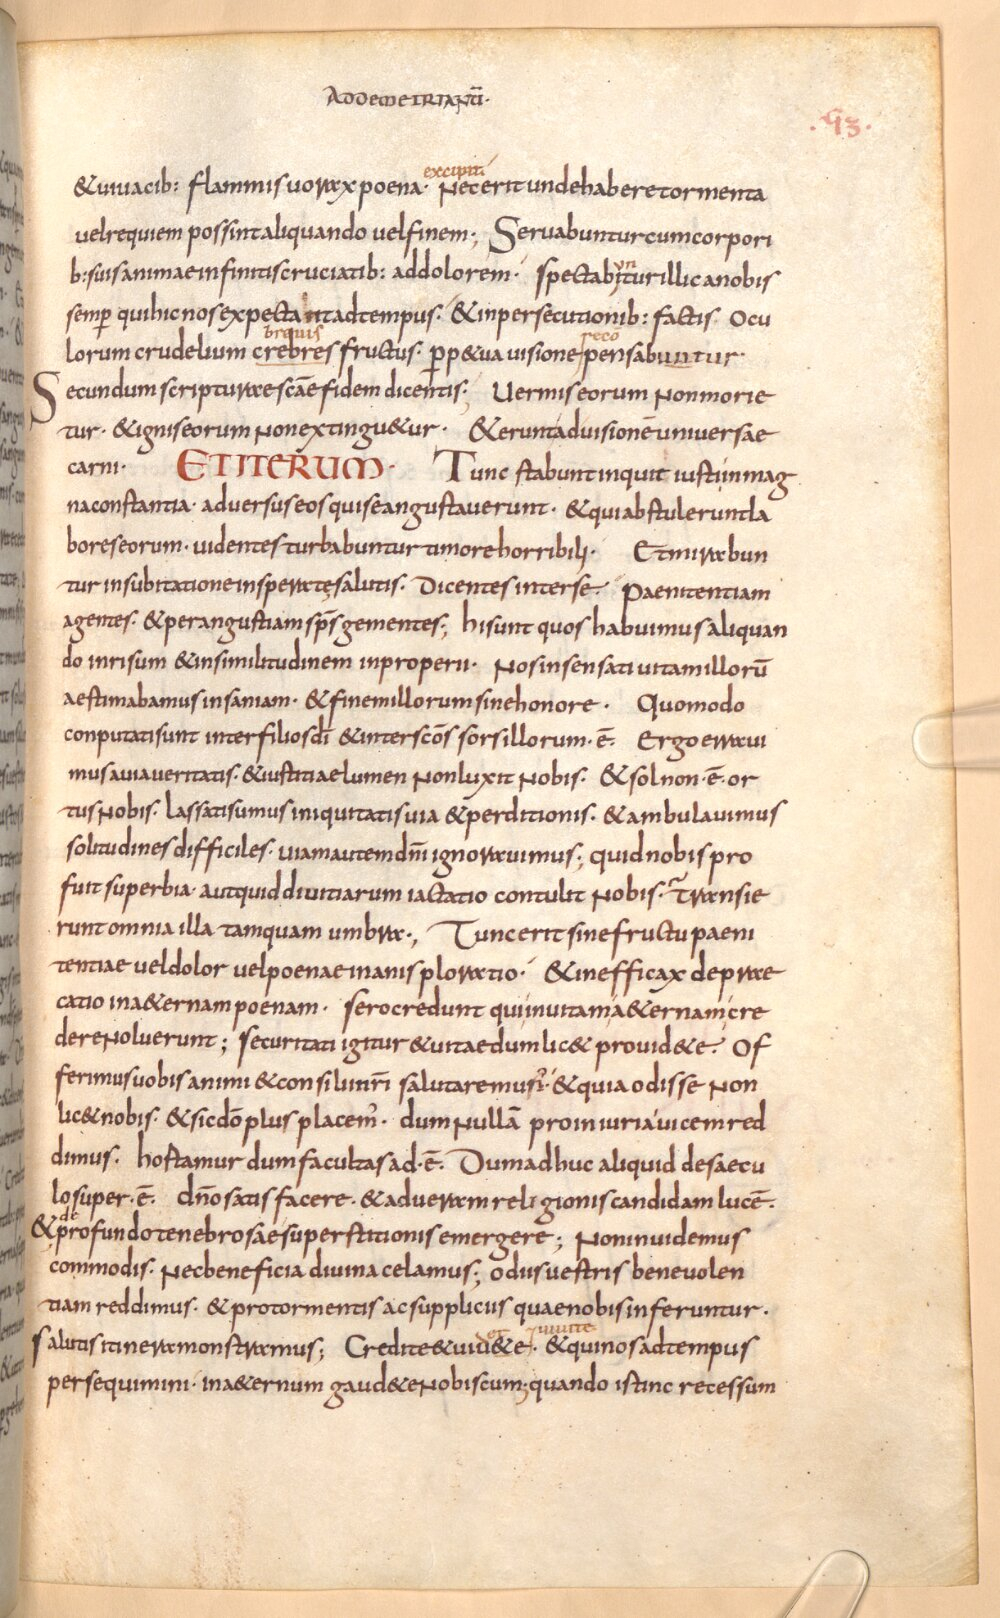 AD DEMETRIANŪ·
·93·
excipit.
& uiuacib: flammis uorax poena· Nec erit unde habere tormenta
uel requiem possint aliquando uel finem·, Seruabuntur cum corpori
b: suis animae infinitis cruciatib: ad dolorem· spectabitur illic a nobis
un
semper qui hic nos expectant ad tempus· & in persecutionib: factis· Ocu
brevis reco
lorum crudelium crebres fructus· perp&ua uisione pensabuntur·
Secundum scripturae scāe fidem dicentis; Uermis eorum non morie
tur· & ignis eorum non extingu&ur· & erunt ad uisionē uniuersae
carni· ET ITERUM· Tunc stabunt inquit iusti in mag
na constantia· aduersus eos qui se angustauerunt· & qui abstulerunt la
bores eorum· uidentes turbabuntur timore horribili· Et mirabun
tur in subitatione insperatę salutis· Dicentes inter se· Paenitentiam
agentes· & per angustiam sp̄s gementes; hi sunt quos habuimus aliquan
do in risum & in similitudinem inproperii· Nos insensati uitam illorū
aestimabamus insaniam· & finem illorum sine honore· Quomodo
conputati sunt inter filios dī & inter scōs sors illorum·ē· Ergo erraui
mus a uia ueritatis· & iustitiae lumen non luxit nobis· & sol non·ē·or
tus nobis· lassati sumus iniquitatis uia & perditionis· & ambulauimus
solitudines difficiles· uiam autem dn̄i ignorauimus; quid nobis pro
fuit superbia· aut quid diuitiarum iactatio contulit nobis· Transie
runt omnia illa tamquam umbra·, Tunc erit sine fructu paeni
tentiae uel dolor uel poenae inanis ploratio· & inefficax deprae
catio in a&ernam poenam· sero credunt qui in uitam a&ernam cre
dere noluerunt; securitati igitur & uitae dum lic& prouid&e· Of
ferimus uobis animi & consilii nr̄i salutare munus· & quia odisse non
lic& nobis· & sic dō plus placem᾽· dum nullā pro iniuria uicem red
dimus· hostamur dum facultas ad·ē· Dum adhuc aliquid de saecu
lo super·ē· dn̄o satis facere· & ad ueram religionis candidam lucē·
de
& profundo tenebrosae superstitionis emergere; Non inuidemus
commodis· Nec beneficia diuina celamus; odiis uestris beneuolen
tiam reddimus· & pro tormentis ac suppliciis quae nobis inferuntur·
salutis itinera monstramus; Credite & uiu&e· & qui nos ad tempus
persequimini· in a&ernum gaud&e nobiscum; quando istinc recessum